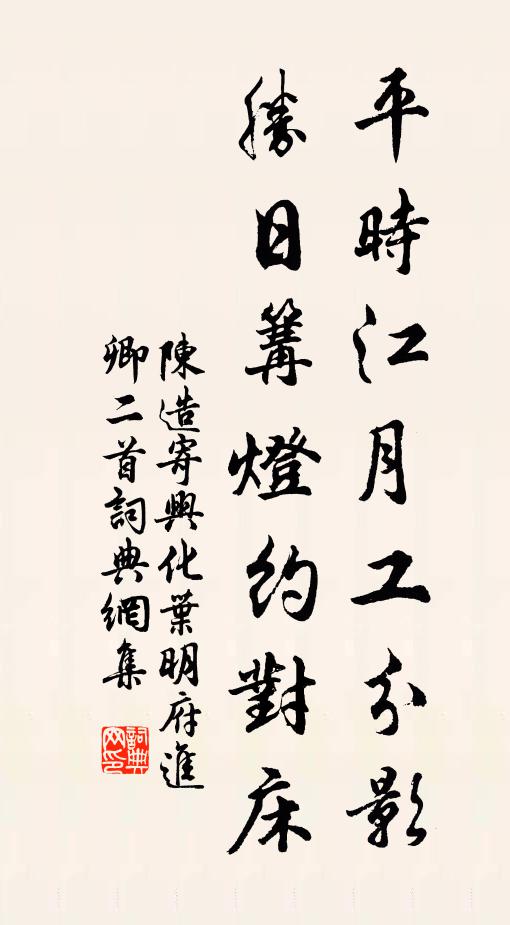 平時江月工分影
勝日篝燈約對床
陳造寄興化葉明府進
卿二首詞典網集
詞典网印